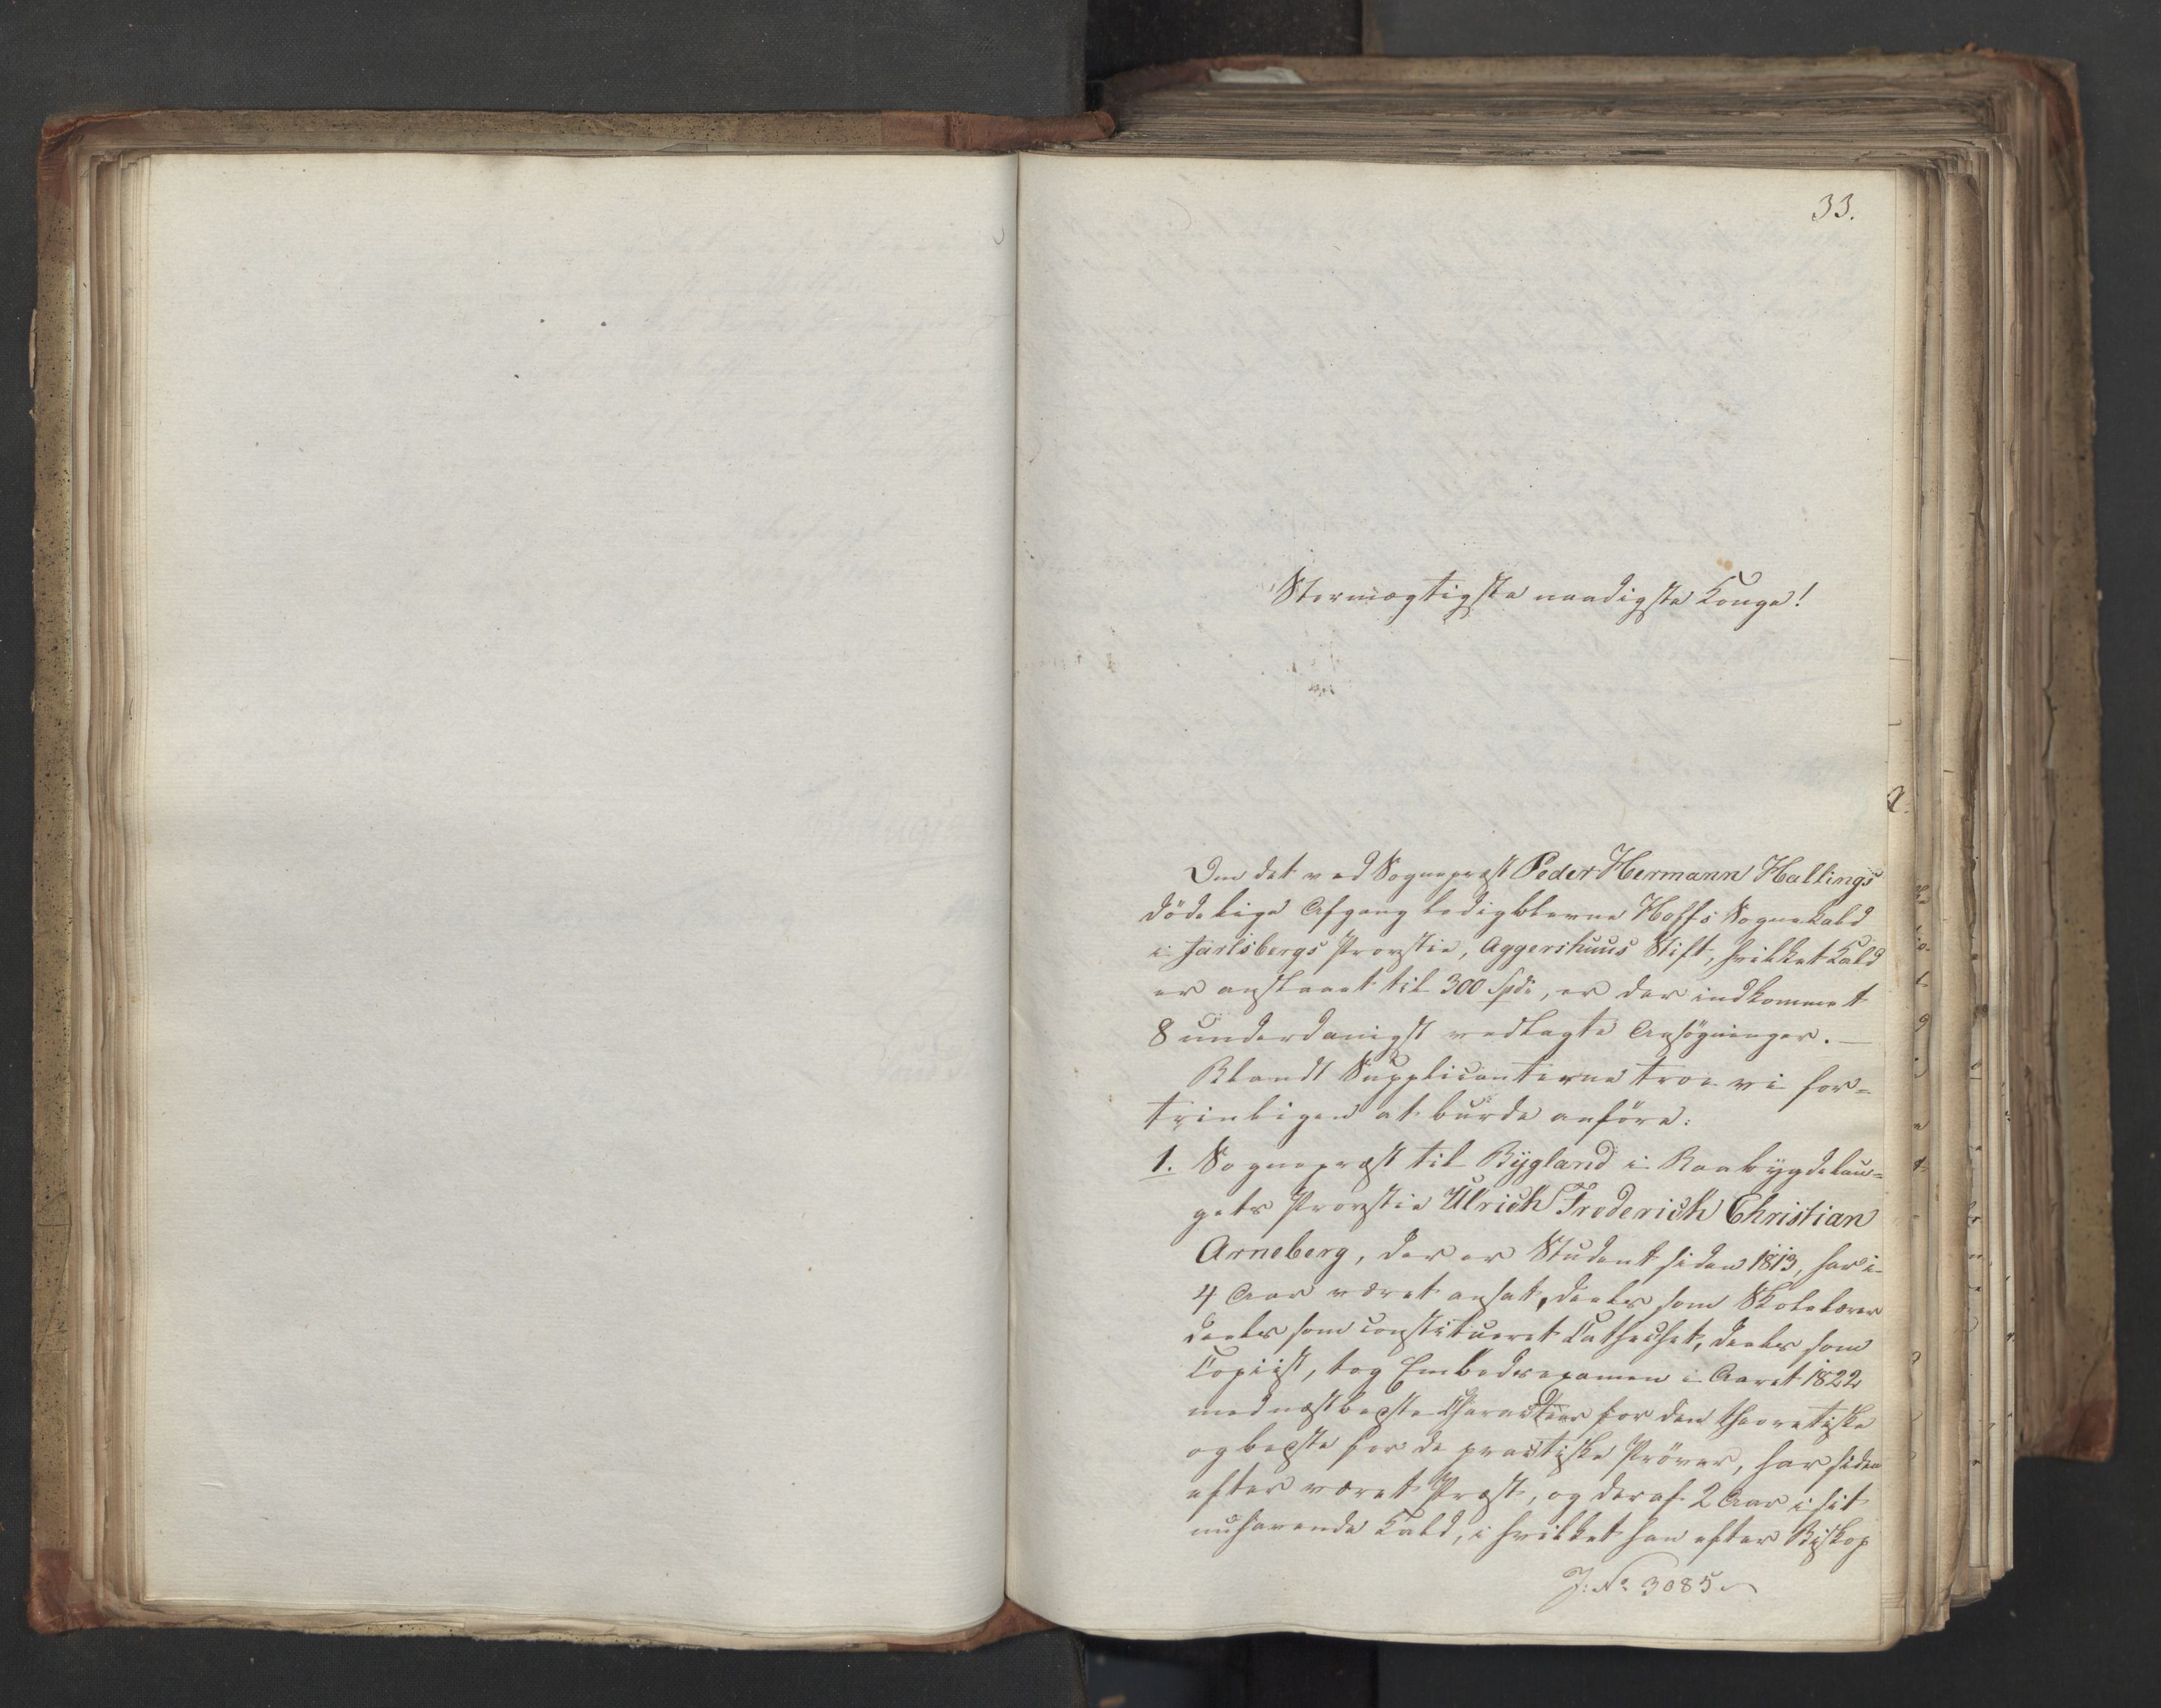 33.
Stormægtigste naadigste Konge!
Om det ved Sognepræst Peder Hermann Hallings
dödelige Afgang ledigblevne Hoffs Sognekald
i Jarlsbergs Provstie, Aggershuus Stift, hvilket Kald
er anslaaet til 300 Spd:, er der indkommet
8 underdanigst vedlagte Ansögninger. —
Blandt Supplicanterne troe vi for=
trinligen at burde anföre:
1. Sognepræst til Bygland i Raabygdelau=
gets Provstie Ulrich Frederich Christian
Arneberg, der er Student siden 1813, har i
4 Aar været ansat, deels som Skolelærer
deels som constitueret Cathechet, deels som
Copiist, tog Embedsexamen i Aaret 1822
med næstbedste Characteer for den theoretiske
og bedste for de practiske Pröver, har siden
efter været Præst, og deraf 2 Aar i sit
nuhavende Kald, i hvilket han efter Biskop
J: No 3085